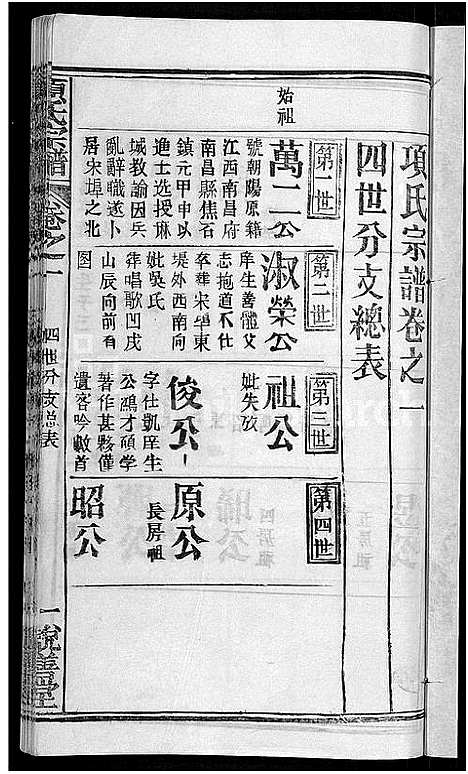 項氏宗譜卷之一
四世分支總表
第一世
始祖
萬二公
號朝陽原籍
江西南昌府
南昌縣焦石
鎮元甲申以
進士選授麻
城教諭因兵
亂辭職遂卜
居宋埠之北
第二世
淑榮公
庠生善體父
志抱道不仕
卒葬宋埠東
堤外西南向
妣吳氏
葬唱歌凹戌
山辰向前有
图
第三世
祖公
妣失攷
俊公
字仕凱庠生
公鴻才碩學
著作甚夥僅
遺客吟數首
第四世
原公
長房祖
昭公
項氏宗譜
卷之一
四世分支总表
一